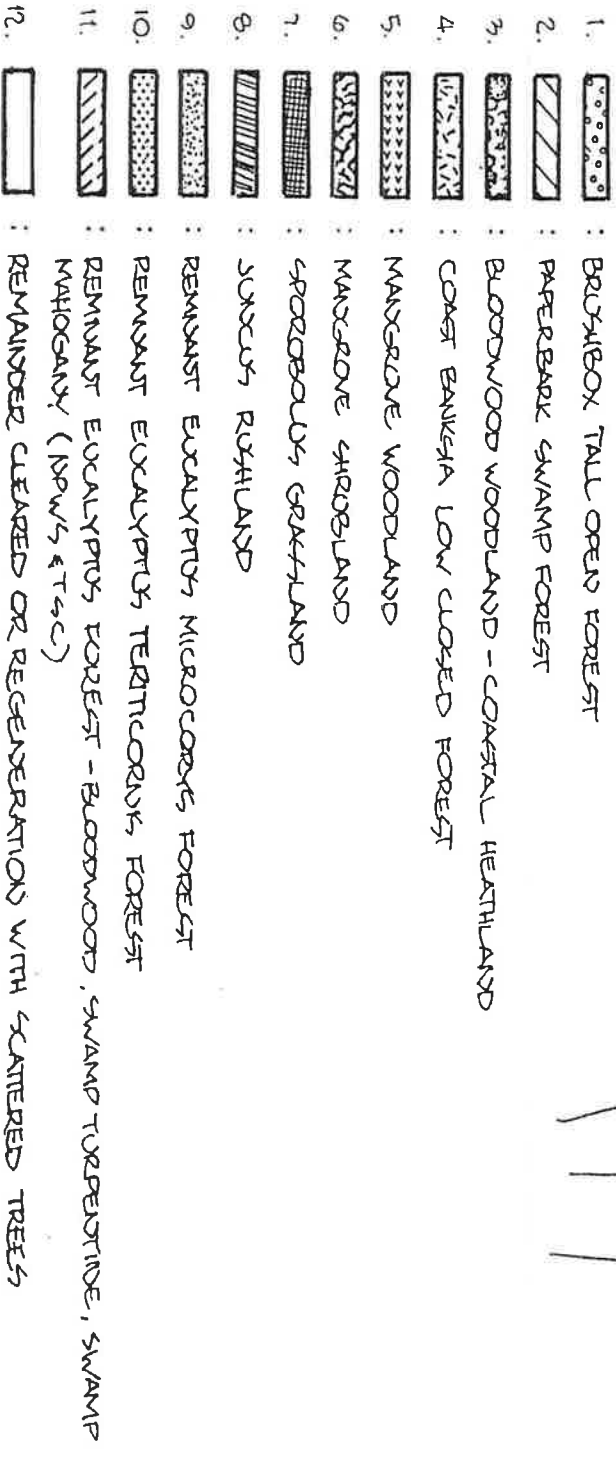 1. : BRUSHBOX TALL OPEN FOREST
2. : PAPERBARK SWAMP FOREST
3. : BLOODWOOD WOODLAND - COASTAL HEATHLAND
4. : COAST BANKSIA LOW CLOSED FOREST
5. : MANGROVE WOODLAND
6. : MANGROVE SHRUBLAND
7. : SPOROBOLUS GRASSLAND
8. : JUNCUS RUSHLAND
9. : REMNANT EUCALYPTUS MICROCORYS FOREST
10. : REMNANT EUCALYPTUS TERITICORNIS FOREST
11. : REMNANT EUCALYPTUS FOREST - BLOODWOOD, SWAMP TURPENTINE, SWAMP
MAHOGANY (NPWS & TSC)
12. : REMAINDER CLEARED OR REGENERATION WITH SCATTERED TREES